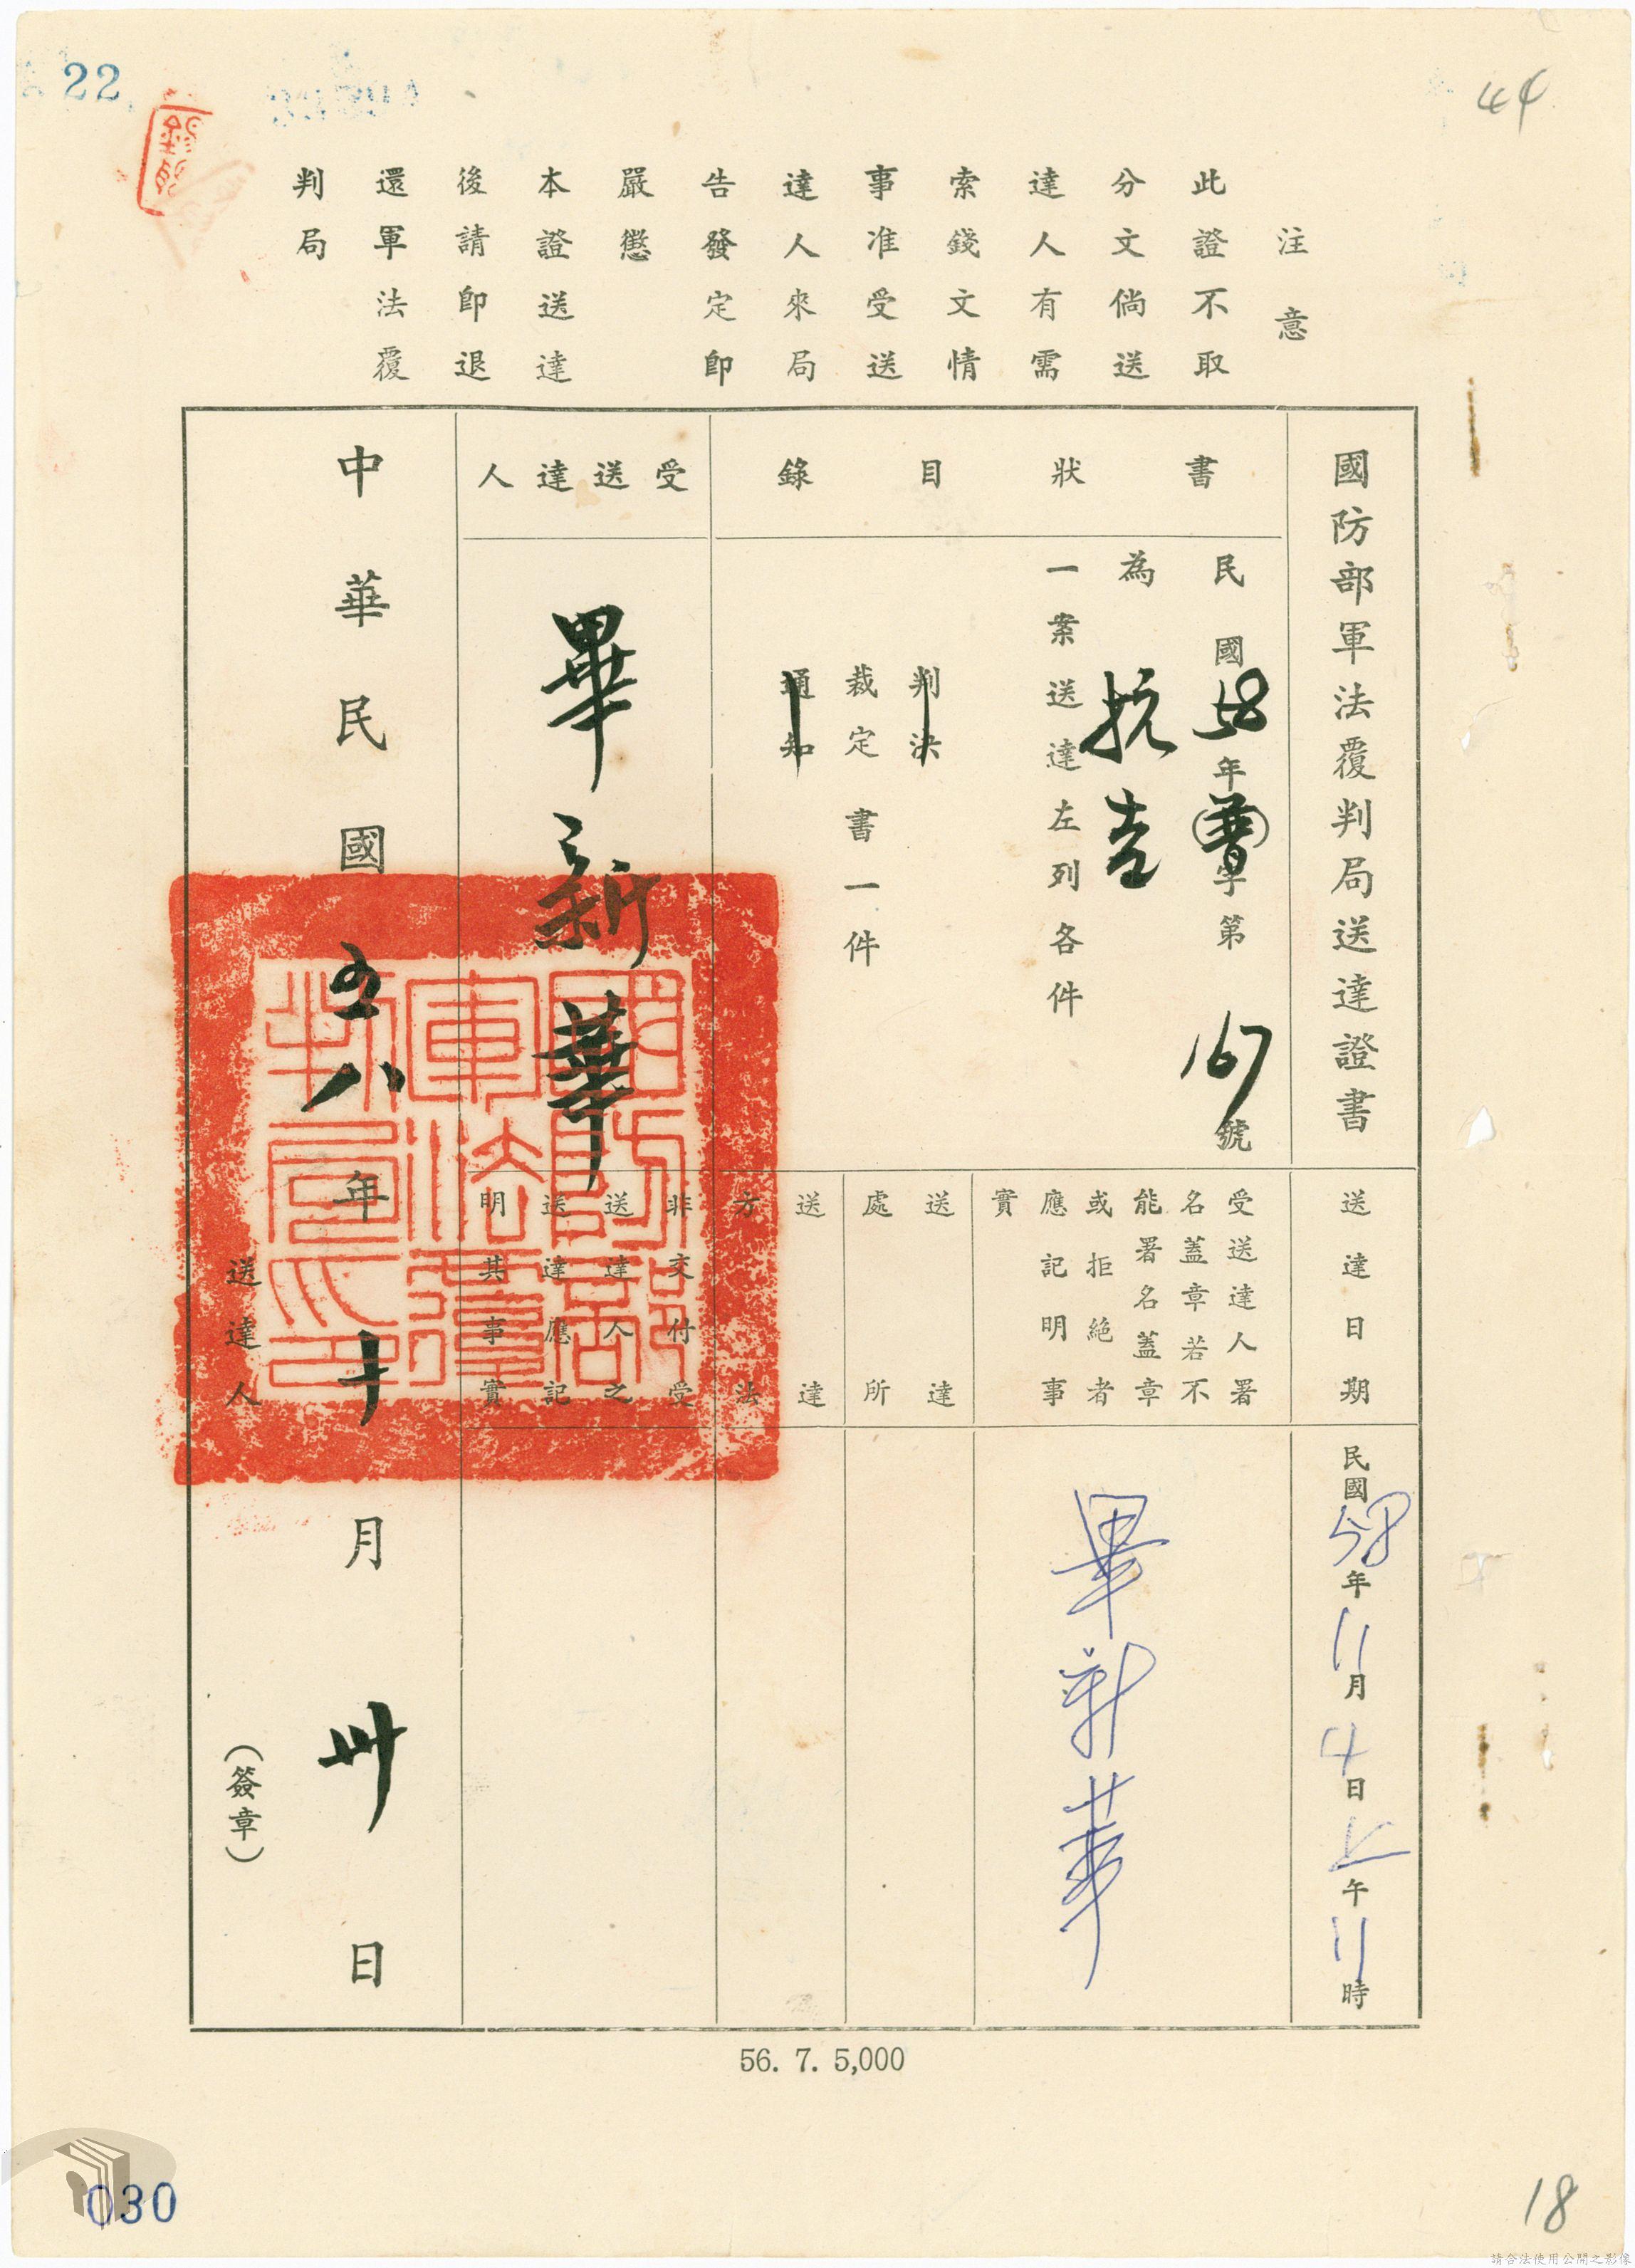 22
44
注意
此證不取
分文倘送
達人有需
索錢文情
事准受送
達人來局
告發定即
嚴懲
本證送達
後請即退
還軍法覆
判局
國防部軍法覆判局送達證書
書狀目錄
民國58年(普)字第167號
為抗告
一案送達左列各件
判決
裁定書一件
通知
受送達人
畢新華
送達日期
民國58年11月4日上午11時
受送達人署
名蓋章若不
能署名蓋章
或拒絕者
應記明事
實
畢新華
送達
處所
送達
方法
非交付受
送達人之
送達應記
明其事實
國防部
軍法覆
判局印
中華民國五八年十月卅日
送達人
(簽章)
56. 7. 5,000
030
18
請合法使用公開之影像